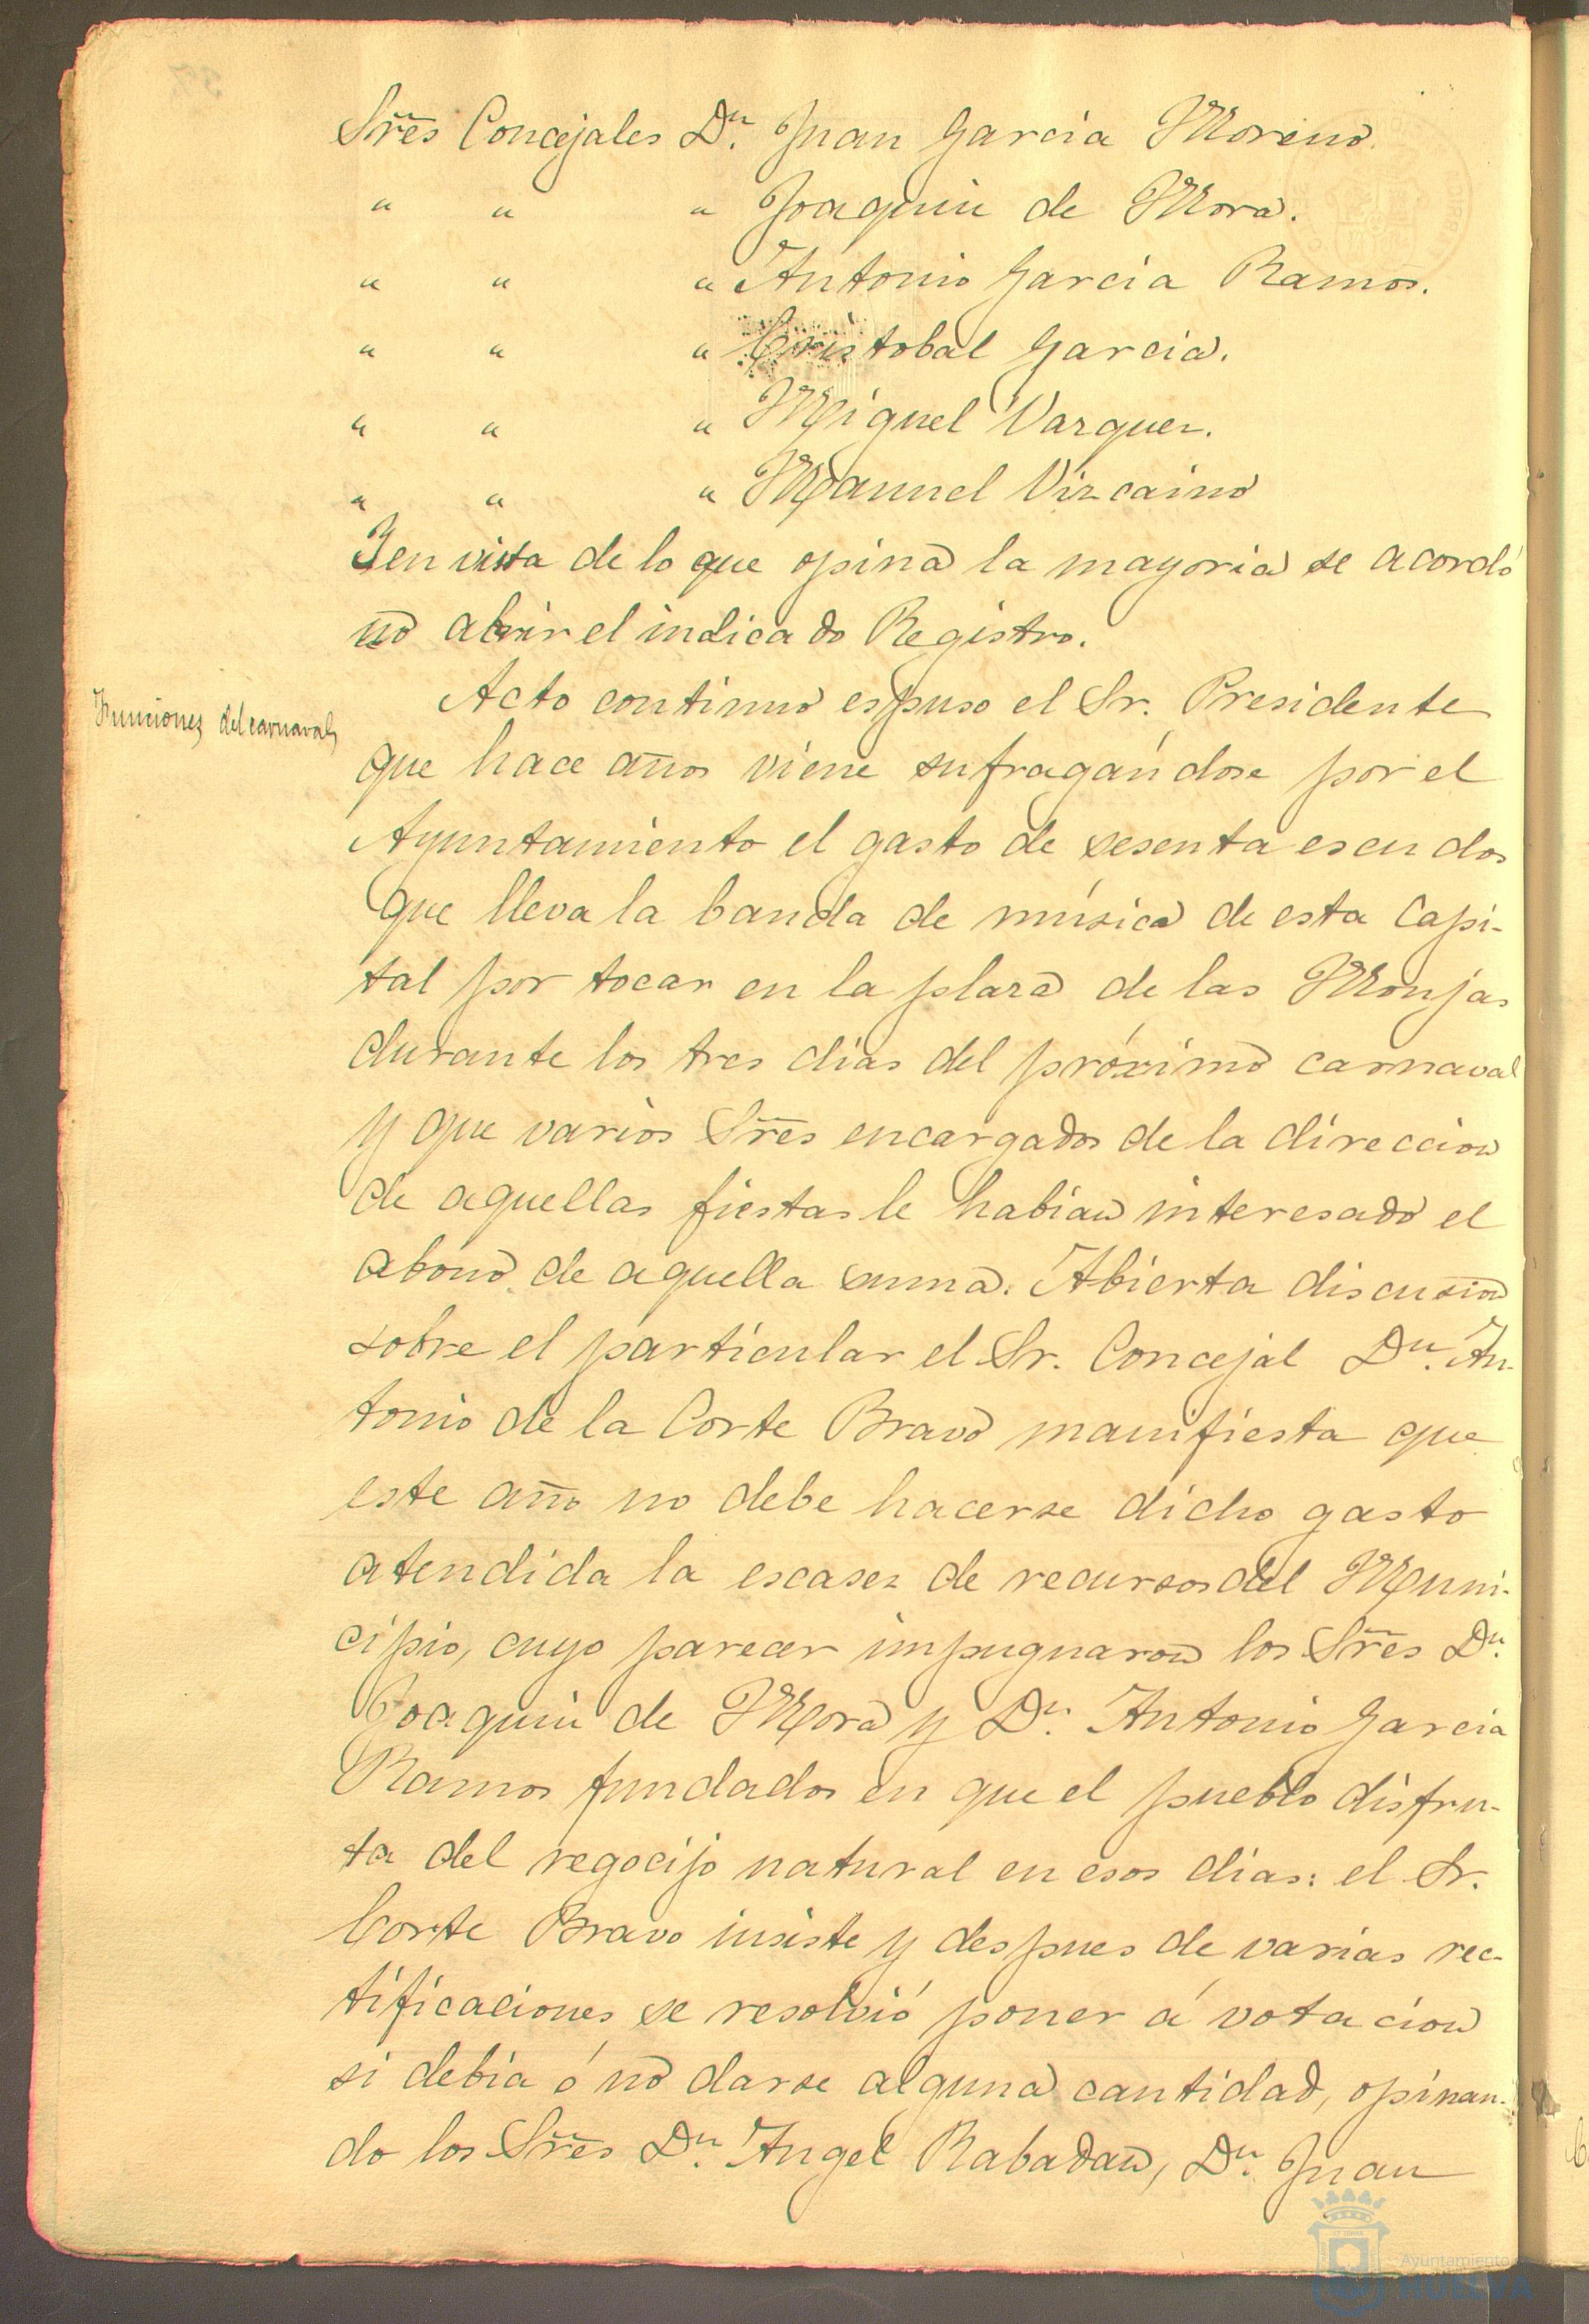 Sr̃es Concejales Dn. Juan Garcia Moreno.
" " " Joaquin de Mora.
" " " Antonio Garcia Ramos.
" " " Cristobal Garcia.
" " " Miguel Vazquez.
" " " Manuel Vizcaino
Y en vista de lo que opina la mayoria se acordó
no abrir el indicado Registro.
Funciones del carnaval
Acto continuo espuso el Sr. Presidente
que hace años viene sufragándose por el
Ayuntamiento el gasto de sesenta escudos
que lleva la banda de música de esta Capi-
tal por tocar en la plaza de las Monjas
durante los tres dias del próximo carnaval
y que varios Sr̃es encargados de la direccion
de aquellas fiestas le habian interesado el
abono de aquella suma. Abierta discusion
sobre el particular el Sr. Concejal Dn. An-
tonio de la Corte Bravo manifiesta que
este año no debe hacerse dicho gasto
atendida la escasez de recursos del Muni-
cipio, cuyo parecer impugnaron los Sr̃es Dn.
Joaquin de Mora y Dn. Antonio Garcia
Ramos fundados en que el pueblo disfru-
ta del regocijo natural en esos dias: el Sr.
Corte Bravo insiste y despues de varias rec-
tificaciones se resolvió poner á votacion
si debia ó no darse alguna cantidad, opinan-
do los Sr̃es Dn. Angel Rabadan, Dn. Juan
Ayuntamiento
HUELVA